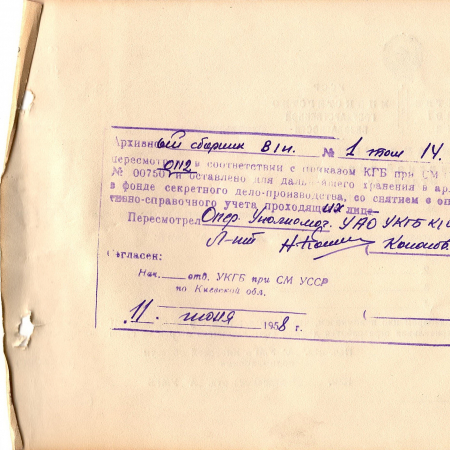 Архивн ый сборник в/н. № 1 том 14.
пересмотрен в соответствии с приказом КГБ при СМ
№ 00750 и 0112 оставлено для дальнейшего хранения в ар
в фонде секретного дело-производства, со снятием с оп
тивно-справочного учета проходящих лиц
Пересмотрел Опер. Уполномоч. УАО УКГБ К
Л-нт
Согласен:
Нач. отд. УКГБ при СМ УССР
по Киевской обл.
11. июня 1958 г. (